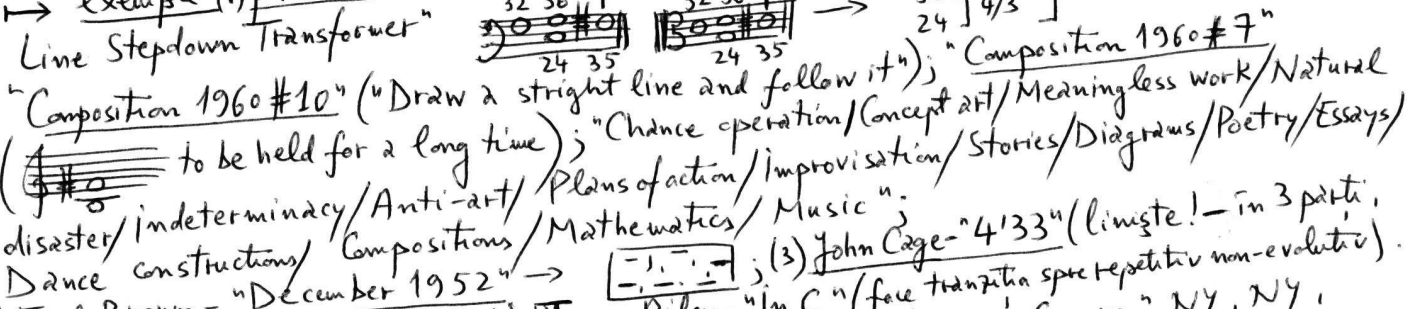 exemple
32 36 1 32 36 1 24 ] 4/3 ]
Line Stepdown Transformer" 24 35 24 35
"Composition 1960 #10" ("Draw a stright line and follow it"); "Composition 1960 #7"
( to be held for a long time); "Chance operation/Concept art/Meaningless work/Natural
disaster/indeterminacy/Anti-art/Plans of action/improvisation/Stories/Diagrams/Poetry/Essays/
Dance constructions/Compositions/Mathematics/Music";
"December 1952" → ; (3) John Cage - "4'33" (linişte! - în 3 părţi,
"In C" (face tranziţia spre repetitiv non-evolutiv).
NY, NY,